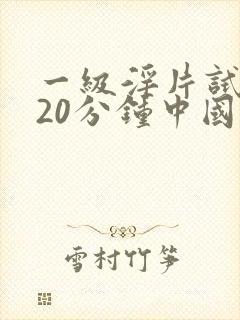 一級淫片試
20分鍾中國
雪村竹筝